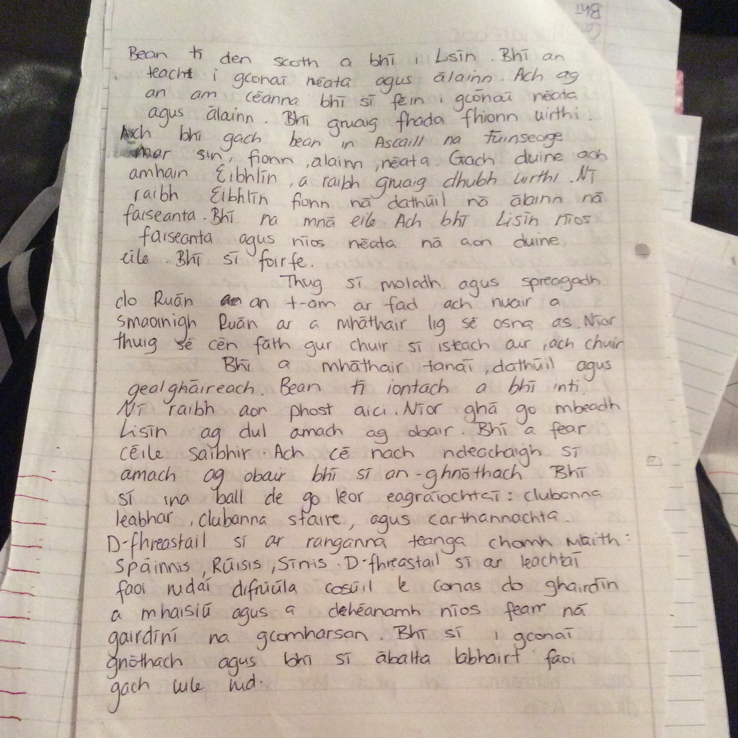 Bean tí den scoth a bhí i Lsín. Bhí an
teacht i gconaí néata agus álainn. Ach ag
an am céanna bhí sí féin i gcónaí néata
agus álainn. Bhí gruaig fhada fhionn uirthi.
Ach bhí gach bean in Ascaill na Fuinseoge
mar sin, fionn, alainn, néata. Gach duine ach
amhain Eibhlín, a raibh gruaig dhubh uirthi. Ní
raibh Eibhlín fionn ná dathúil nó álainn ná
faiseanta. Bhí na mná eile. Ach bhí Lisín níos
faiseanta agus níos néata ná aon duine
eile. Bhí sí foirfe.
Thug sí moladh agus spreagadh
do Ruán an t-am ar fad ach nuair a
smaoinigh Ruán ar a mháthair lig sé osna as. Níor
thuig sé cén fáth gur chuir sí isteach air, ach chuir
Bhí a mháthair tanaí, dathúil agus
gealgháireach. Bean tí iontach a bhí inti.
Ní raibh aon phost aici. Níor ghá go mbeadh
Lisín ag dul amach ag obair. Bhí a fear
céile saibhir. Ach cé nach ndeachaigh sí
amach ag obair bhí sí an-ghnóthach. Bhí
sí ina ball de go leor eagraíochtaí: clubanna
leabhar, clubanna staire, agus carthannachta.
D-fhreastail sí ar ranganna teanga chomh maith:
Spáinnis, Rúisis, Sínis. D-fhreastail sí ar leachtaí
faoi rudaí difriúla cosúil le conas do ghairdín
a mhaisiú agus a dehéanamh níos fearr ná
gairdíní na gcomharsan. Bhí sí i gconaí
gnóthach agus bhí sí ábalta labhairt faoi
gach uile rud.